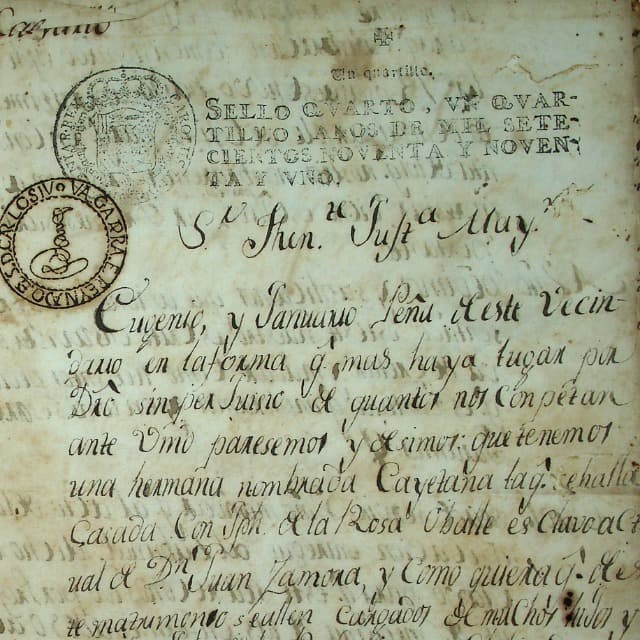 Un quartillo.
SELLO QVARTO, VN QVAR-
TILLO, AÑOS DE MIL SETE-
CIENTOS NOVENTA Y NOVEN-
TA Y VNO.
S.r Then.te Just.a May.r
Eugenio, y Januario Peña deste Vecin-
dario en la forma q. mas haya lugar por
Dro sin perJuisio de quantos nos Conpetan
ante Vmd paresemos y desimos: que tenemos
una hermana nombrada Cayetana la q. se halla
Casada Con Jph. de la Rosa Oballe esClavo act
ual de Dn. Juan Zamora, y Como quiera q. des
te matrimonio se allen Cargados de muchos hijos y